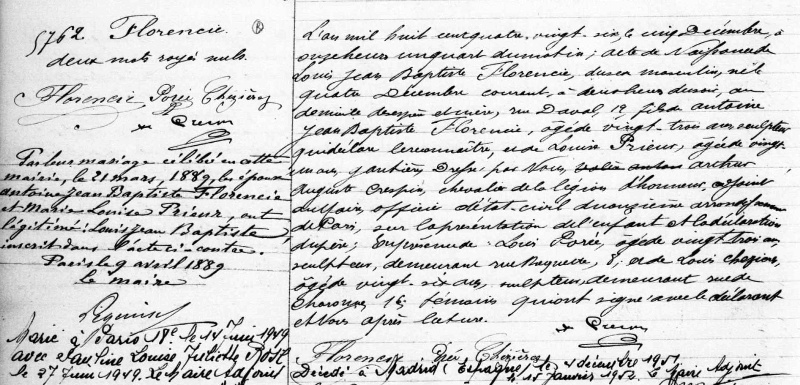 5762. Florencie.
deux mots rayés nuls.
Florencie Porée Chezières
Par leur mariage célébré en cette
mairie, le 21 mars, 1889, les époux
antoine Jean Baptiste Florencie
et Marie Louise Prieur, ont
légitimé: Louis Jean Baptiste,
inscrit dans l'acte ci contre.
Paris le 9 avril 1889
le maire
Marié à Paris 18e le 14 Juin 1919
avec Pauline Louise
le 27 Juin 1919. Le Maire Adjoint
L'an mil huit cent quatre-vingt-six, le cinq Décembre, à
onze heures un quart du matin; acte de Naissance de
Louis Jean Baptiste Florencie, du sexe masculin, né le
quatre Décembre courant, à deux heures du soir, au
domicile de ses père et mère, rue Daval, 12, fils de antoine
Jean Baptiste Florencie, âgé de vingt-trois ans, sculpteur
qui déclare le reconnaître, et de Louise Prieur, agée de vingt-
un ans, Dressé par Nous, arthur,
August Crespin, chevalier de la légion d'honneur, adjoint
au Maire, officier d'état-civil du onzième arrondissement
de Paris, sur la présentation de l'enfant et la déclaration
du père; En présence de: Louis Porée, agé de vingt trois ans,
sculpteur, demeurant rue Baguette, 8; et de Louis Chezières,
âgé de vingt-six ans, sculpteur, demeurant rue de
Charonne, 16; témoins qui ont signé avec le déclarant
et Nous après lecture.
Florencie Porée Chezières
Décédé à Madrid (Espagne) le 1 décembre 1951
le 15 Janvier 1952. Le Maire Adjoint